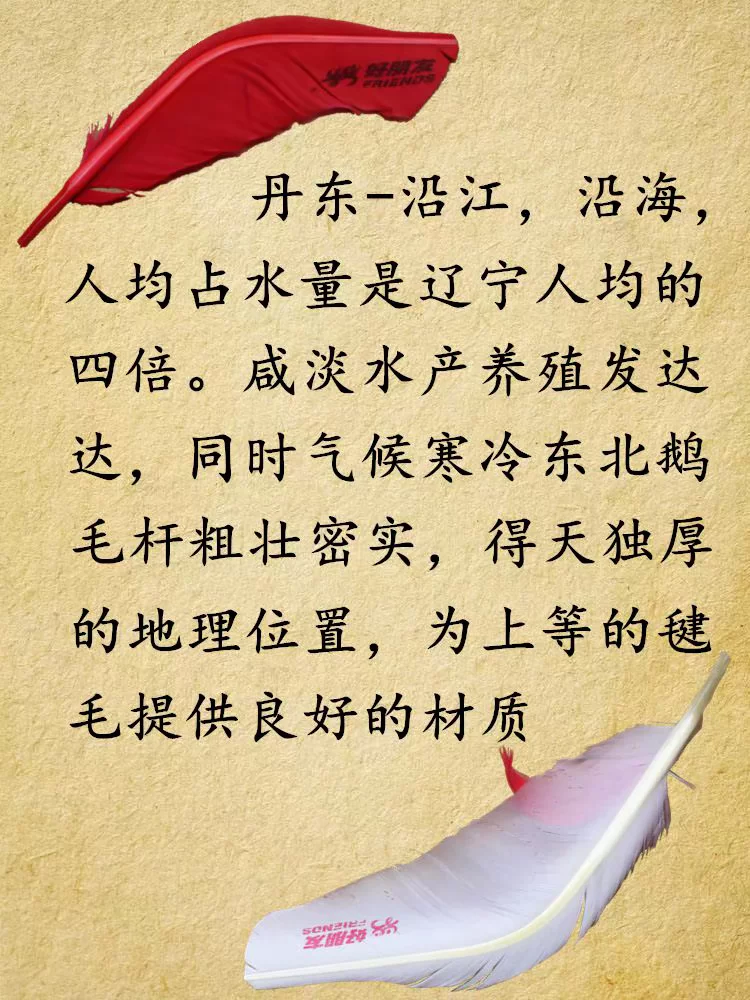 好朋友
FRIENDS
丹东-沿江，沿海，
人均占水量是辽宁人均的
四倍。咸淡水产养殖发达
达，同时气候寒冷东北鹅
毛杆粗壮密实，得天独厚
的地理位置，为上等的毽
毛提供良好的材质
好朋友
FRIENDS